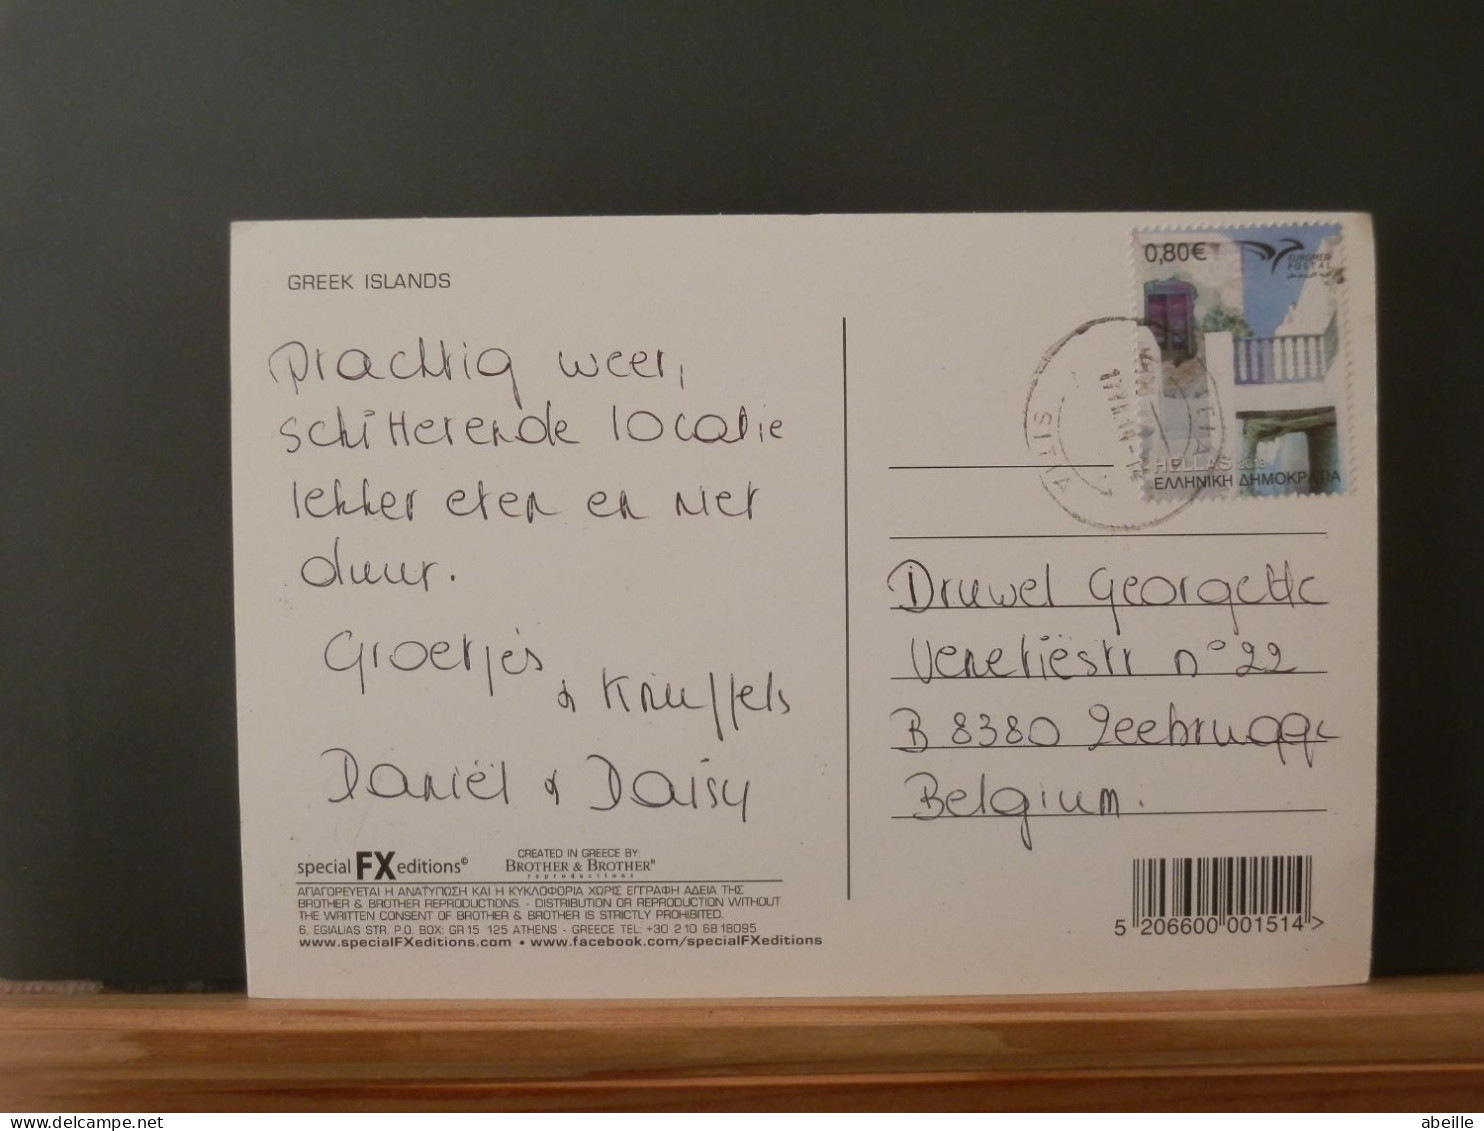 GREEK ISLANDS
prachtig weer,
schitterende locatie
lekker eten en niet
duur.
Groetjes
& Knuffels
Daniël & Daisy
special FX editions©
CREATED IN GREECE BY:
BROTHER & BROTHER
reproductions
ΑΠΑΓΟΡΕΥΕΤΑΙ Η ΑΝΑΤΥΠΩΣΗ ΚΑΙ Η ΚΥΚΛΟΦΟΡΙΑ ΧΩΡΙΣ ΕΓΓΡΑΦΗ ΑΔΕΙΑ ΤΗΣ
BROTHER & BROTHER REPRODUCTIONS. - DISTRIBUTION OR REPRODUCTION WITHOUT
THE WRITTEN CONSENT OF BROTHER & BROTHER IS STRICTLY PROHIBITED.
6, EGIALIAS STR. P.O. BOX: GR 15 125 ATHENS - GREECE TEL: +30 210 6818095
www.specialFXeditions.com • www.facebook.com/specialFXeditions
0,80€
EUROMED
POSTAL
HELLAS
ΕΛΛΗΝΙΚΗ ΔΗΜΟΚΡΑΤΙΑ
Druwel Georgette
Venetiëstr n° 22
B 8380 Zeebrugge
Belgium.
5 206600 001514 >
abeille